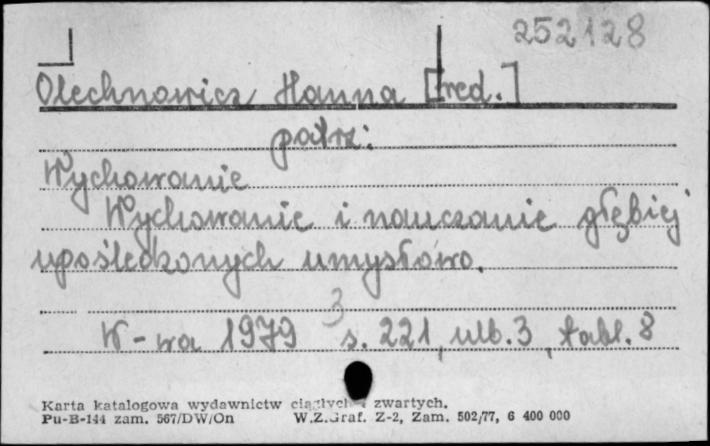 252128
Olechnowicz Hanna [red.]
patrz:
Wychowanie
Wychowanie i nauczanie głębiej
upośledzonych umysłowo.
3
W-wa 1979 s. 221, nlb. 3, tabl. 8
Karta katalogowa wydawnictw ciągłych i zwartych.
Pu-B-144 zam. 567/DW/On W.Z.Graf. Z-2, Zam. 502/77, 6 400 000